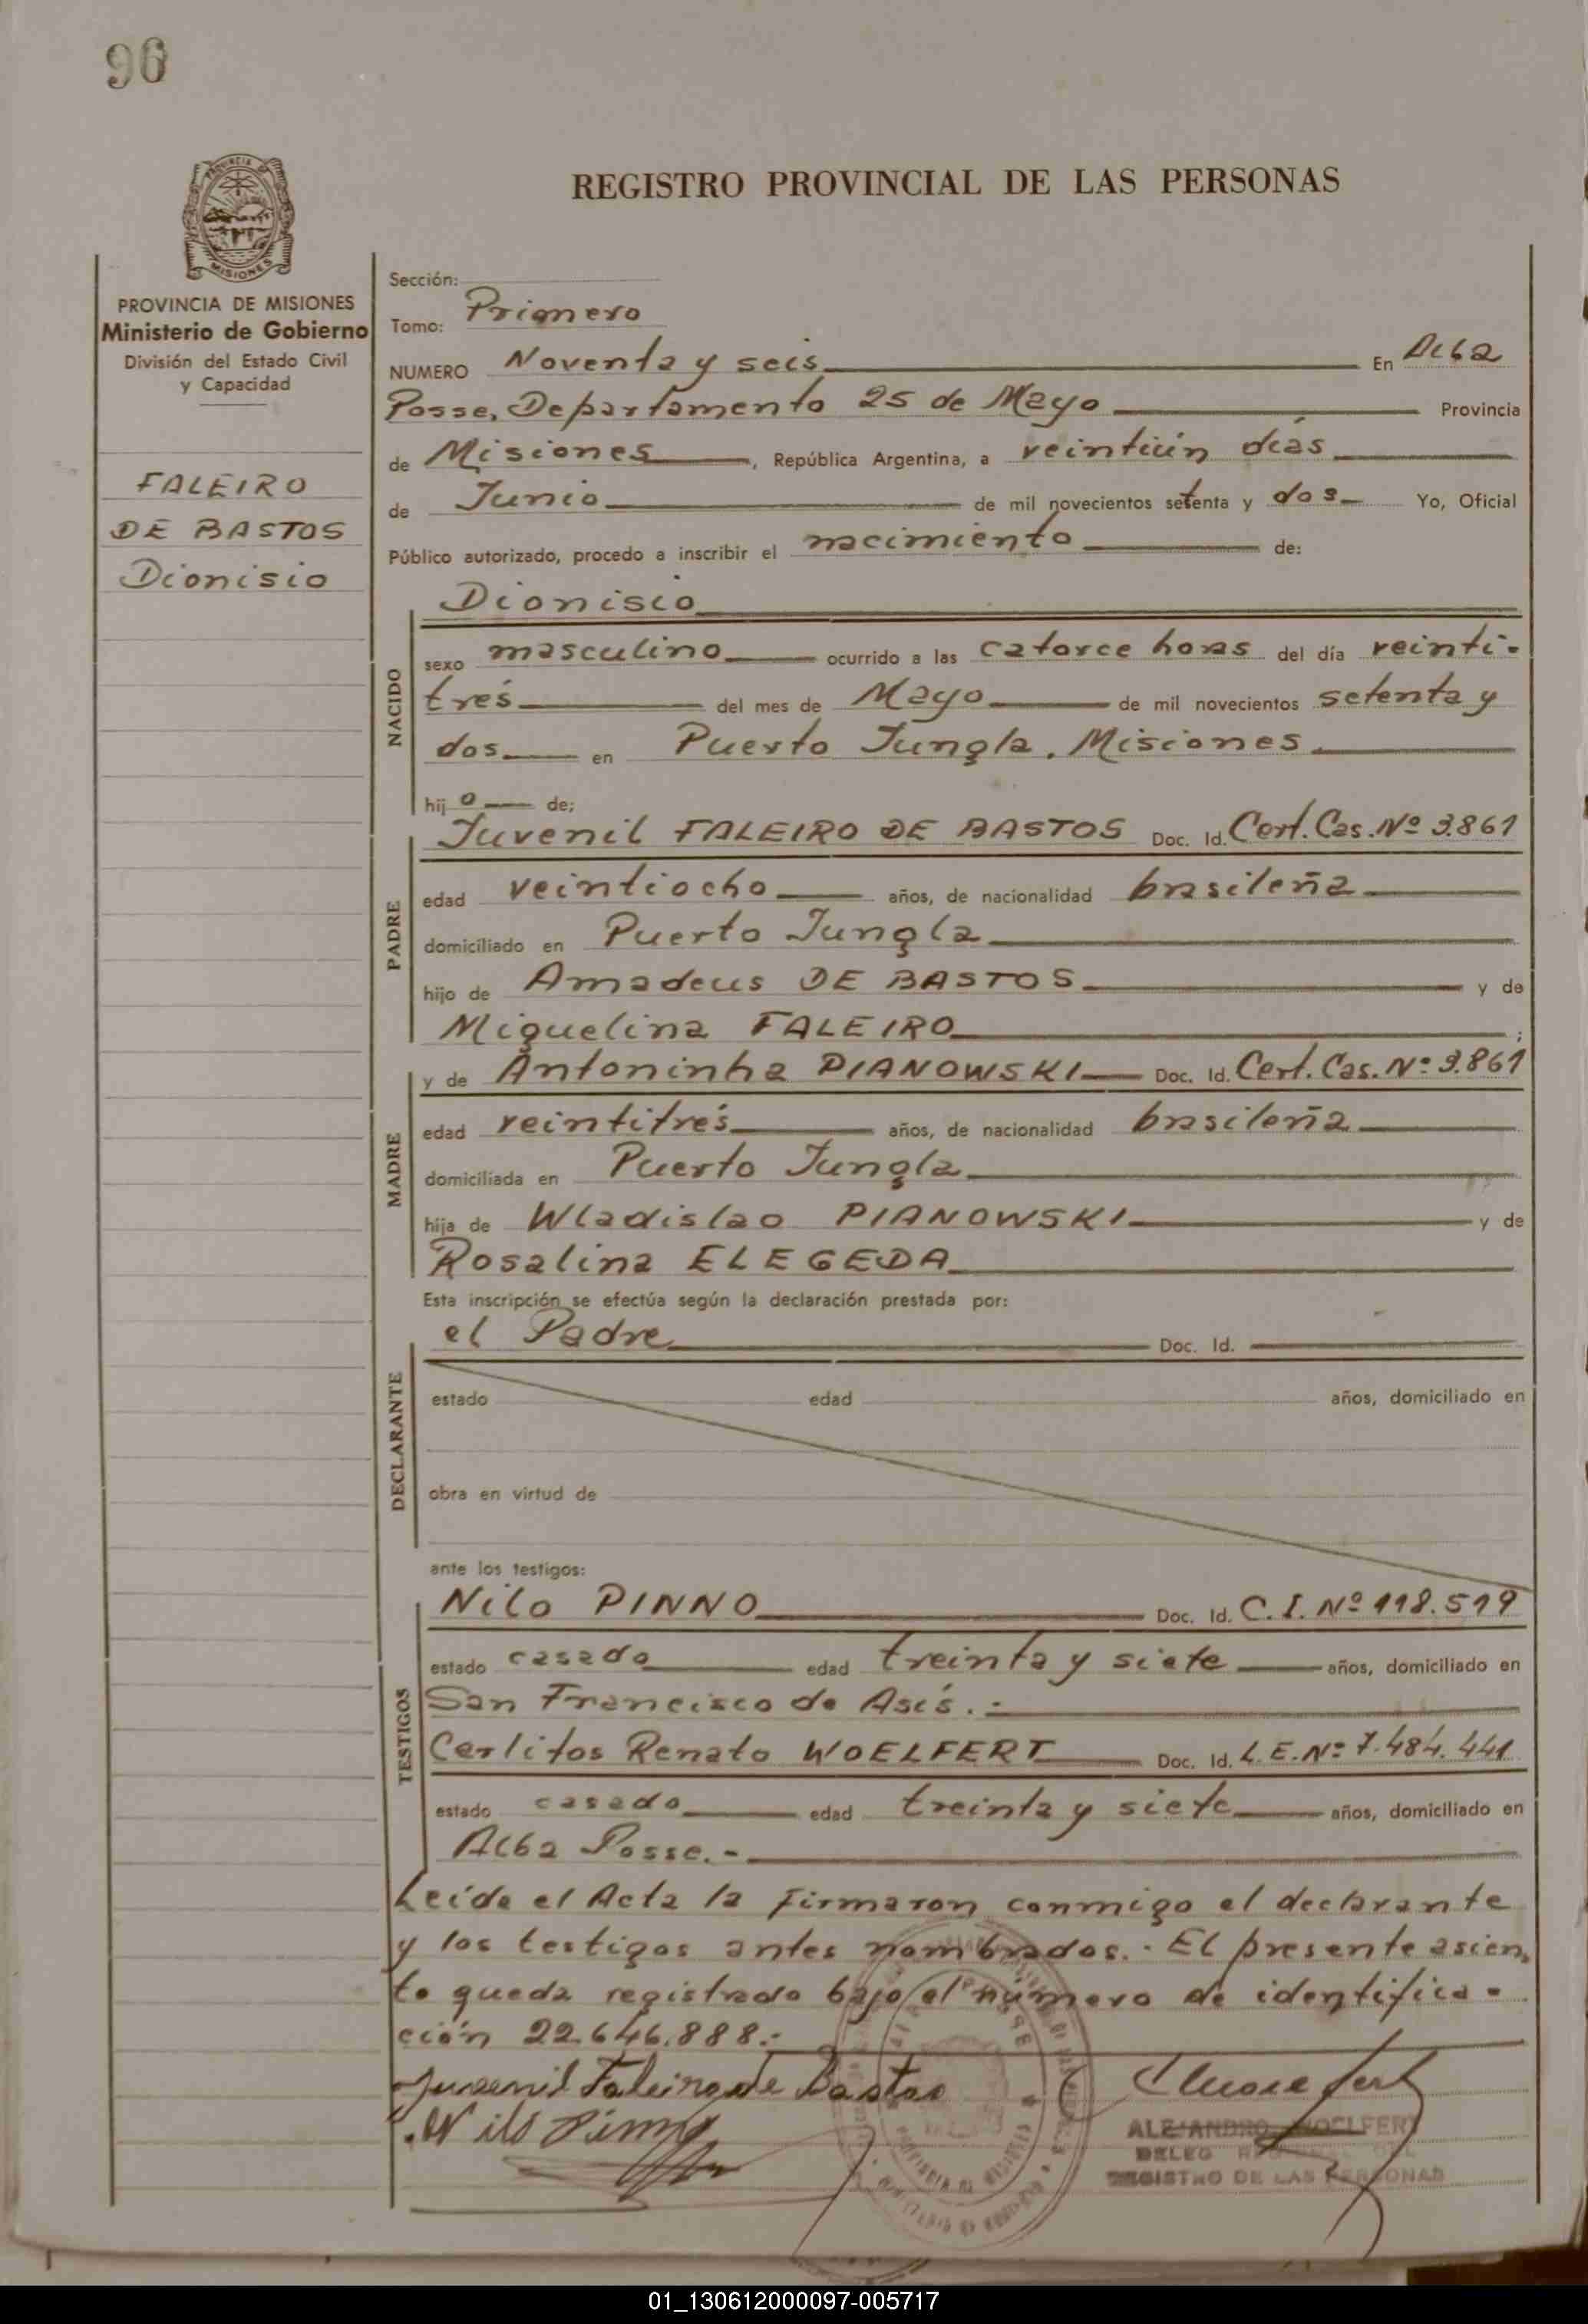 96
REGISTRO PROVINCIAL DE LAS PERSONAS
PROVINCIA DE MISIONES
Ministerio de Gobierno
División del Estado Civil
y Capacidad
FALEIRO
DE BASTOS
Dionisio
Sección:
Tomo: Primero
NUMERO Noventa y seis En Alba
Posse, Departamento 25 de Mayo Provincia
de Misiones, República Argentina, a veintiún días
de Junio de mil novecientos setenta y dos Yo, Oficial
Público autorizado, procedo a inscribir el nacimiento de:
NACIDO
Dionisio
sexo masculino ocurrido a las catorce horas del día veinti-
trés del mes de Mayo de mil novecientos setenta y
dos en Puerto Jungla. Misiones
hij o de:
PADRE
Juvenil FALEIRO DE BASTOS Doc. Id. Cert. Cas. Nº 3.861
edad veintiocho años, de nacionalidad brasileña
domiciliado en Puerto Jungla
hijo de Amadeus DE BASTOS y de
Miguelina FALEIRO ;
MADRE
y de Antoninha PIANOWSKI Doc. Id. Cert. Cas. Nº 3.861
edad veintitrés años, de nacionalidad brasileña
domiciliada en Puerto Jungla
hija de Wladislao PIANOWSKI y de
Rosalina ELEGEDA
Esta inscripción se efectúa según la declaración prestada por:
DECLARANTE
el Padre Doc. Id.
estado edad años, domiciliado en
obra en virtud de
ante los testigos:
TESTIGOS
Nilo PINNO Doc. Id. C.I. Nº 118.519
estado casado edad treinta y siete años, domiciliado en
San Francisco de Asís.-
Carlitos Renato WOELFERT Doc. Id. L.E. Nº 7.484.441
estado casado edad treinta y siete años, domiciliado en
Alba Posse.-
Leída el Acta la firmaron conmigo el declarante
y los testigos antes nombrados.- El presente asien-
to queda registrado bajo el número de identifica-
ción 22.646.888.-
Juvenil Faleiro de Bastos
Nilo Pinno
ALEJANDRO WOELFERT
DELEG
REGISTRO DE LAS PERSONAS
01_130612000097-005717